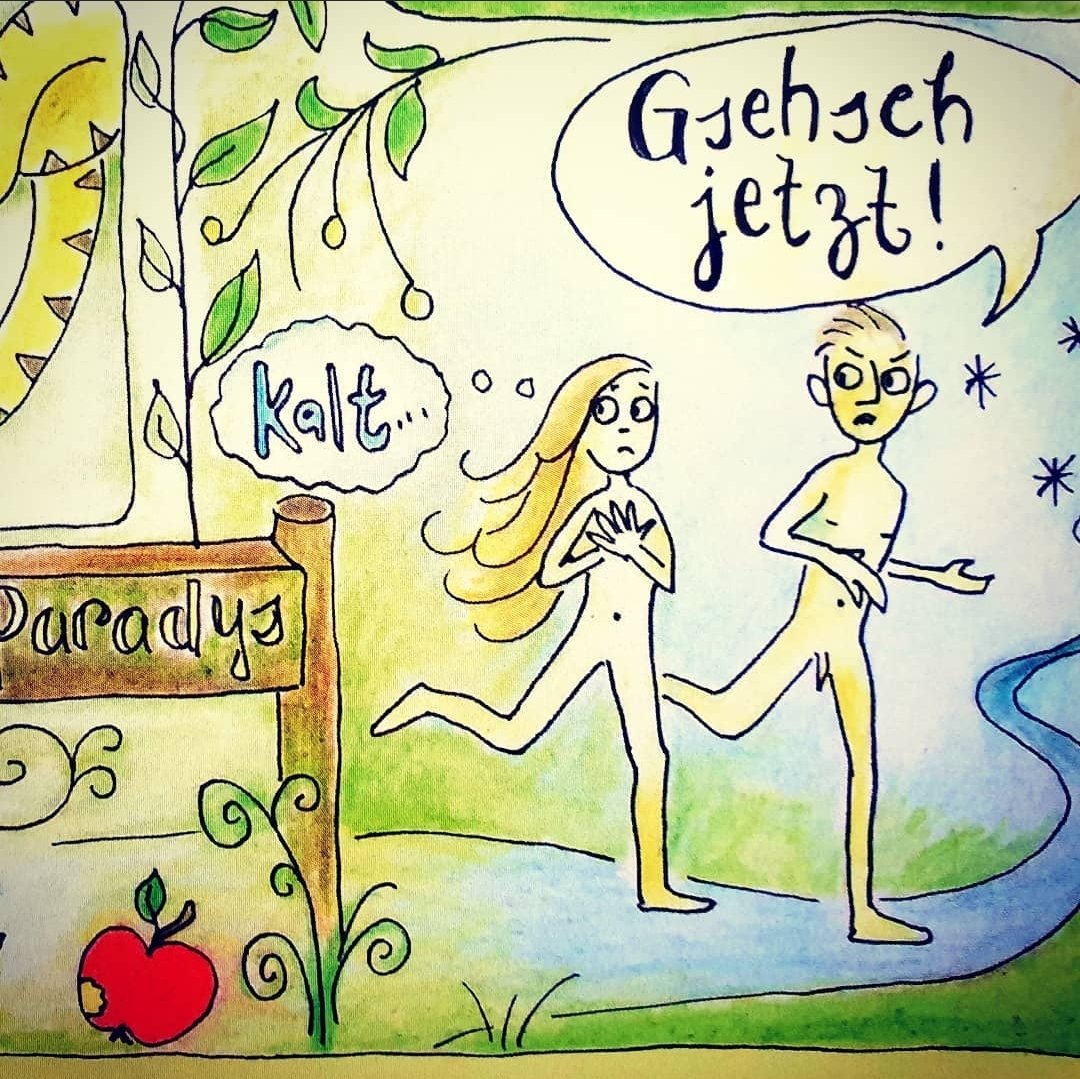 Gsehsch
jetzt!
Kalt...
Paradys